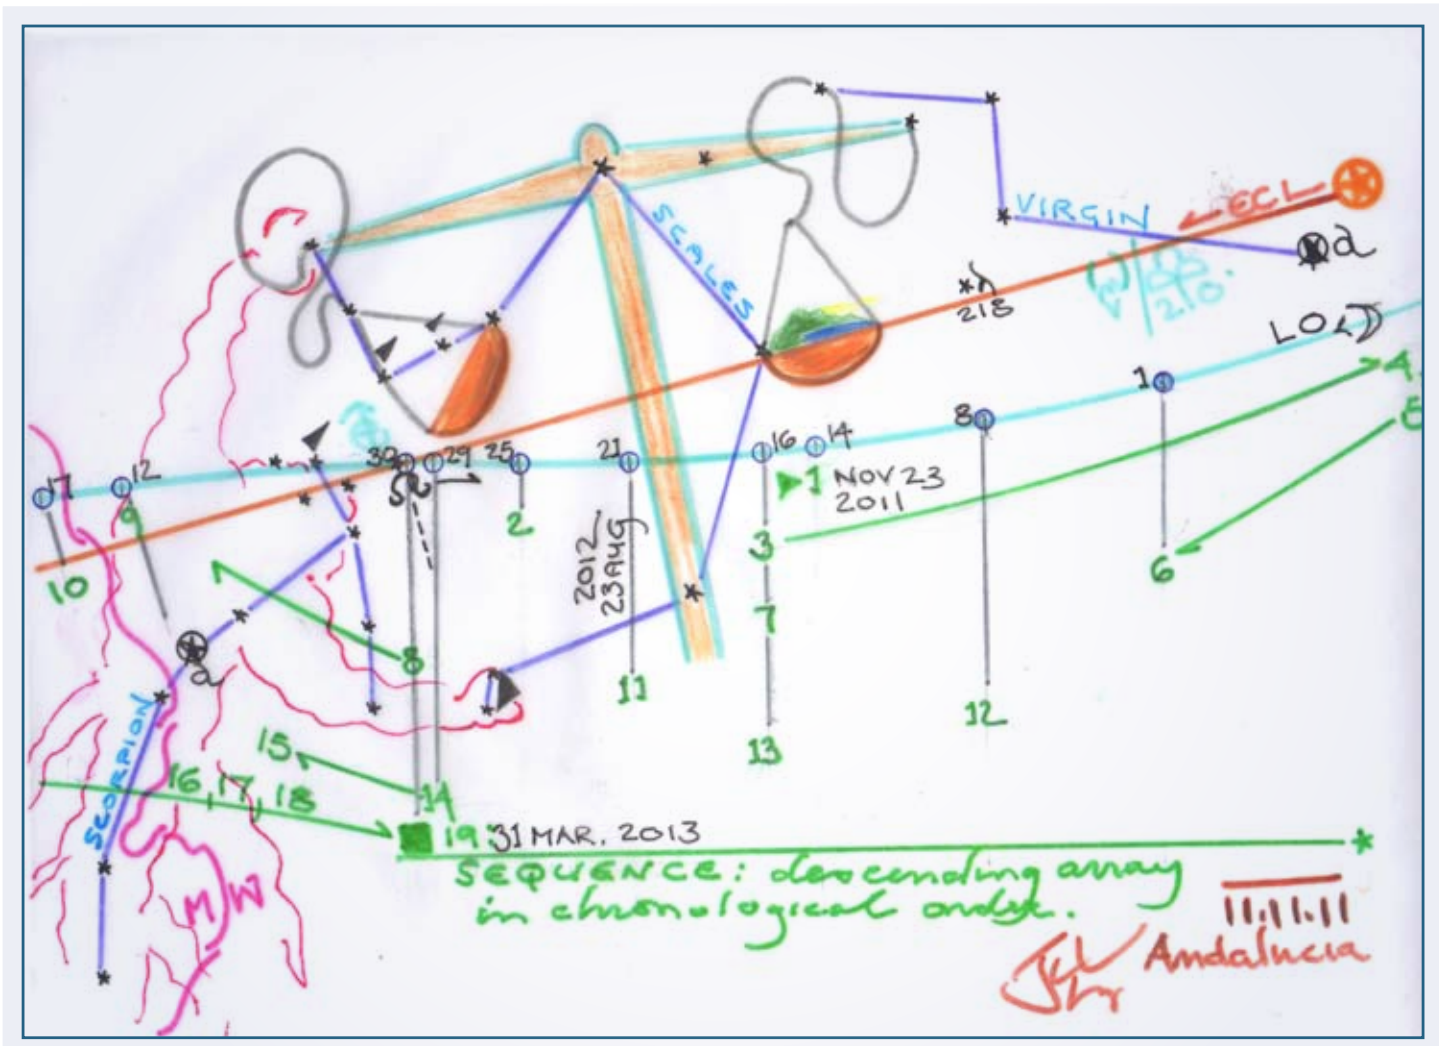 SCALES
VIRGIN
ECL
a
λ
218
210
LO
4
5
1
8
14
16
21
25
29
30
12
17
1 NOV 23
2011
2
3
9
10
6
2012
23 AUG
7
8
a
11
12
13
SCORPION
15
14
16, 17, 18
19: 31 MAR. 2013
SEQUENCE: descending array
in chronological order.
MW
11.11.11
Andalucia